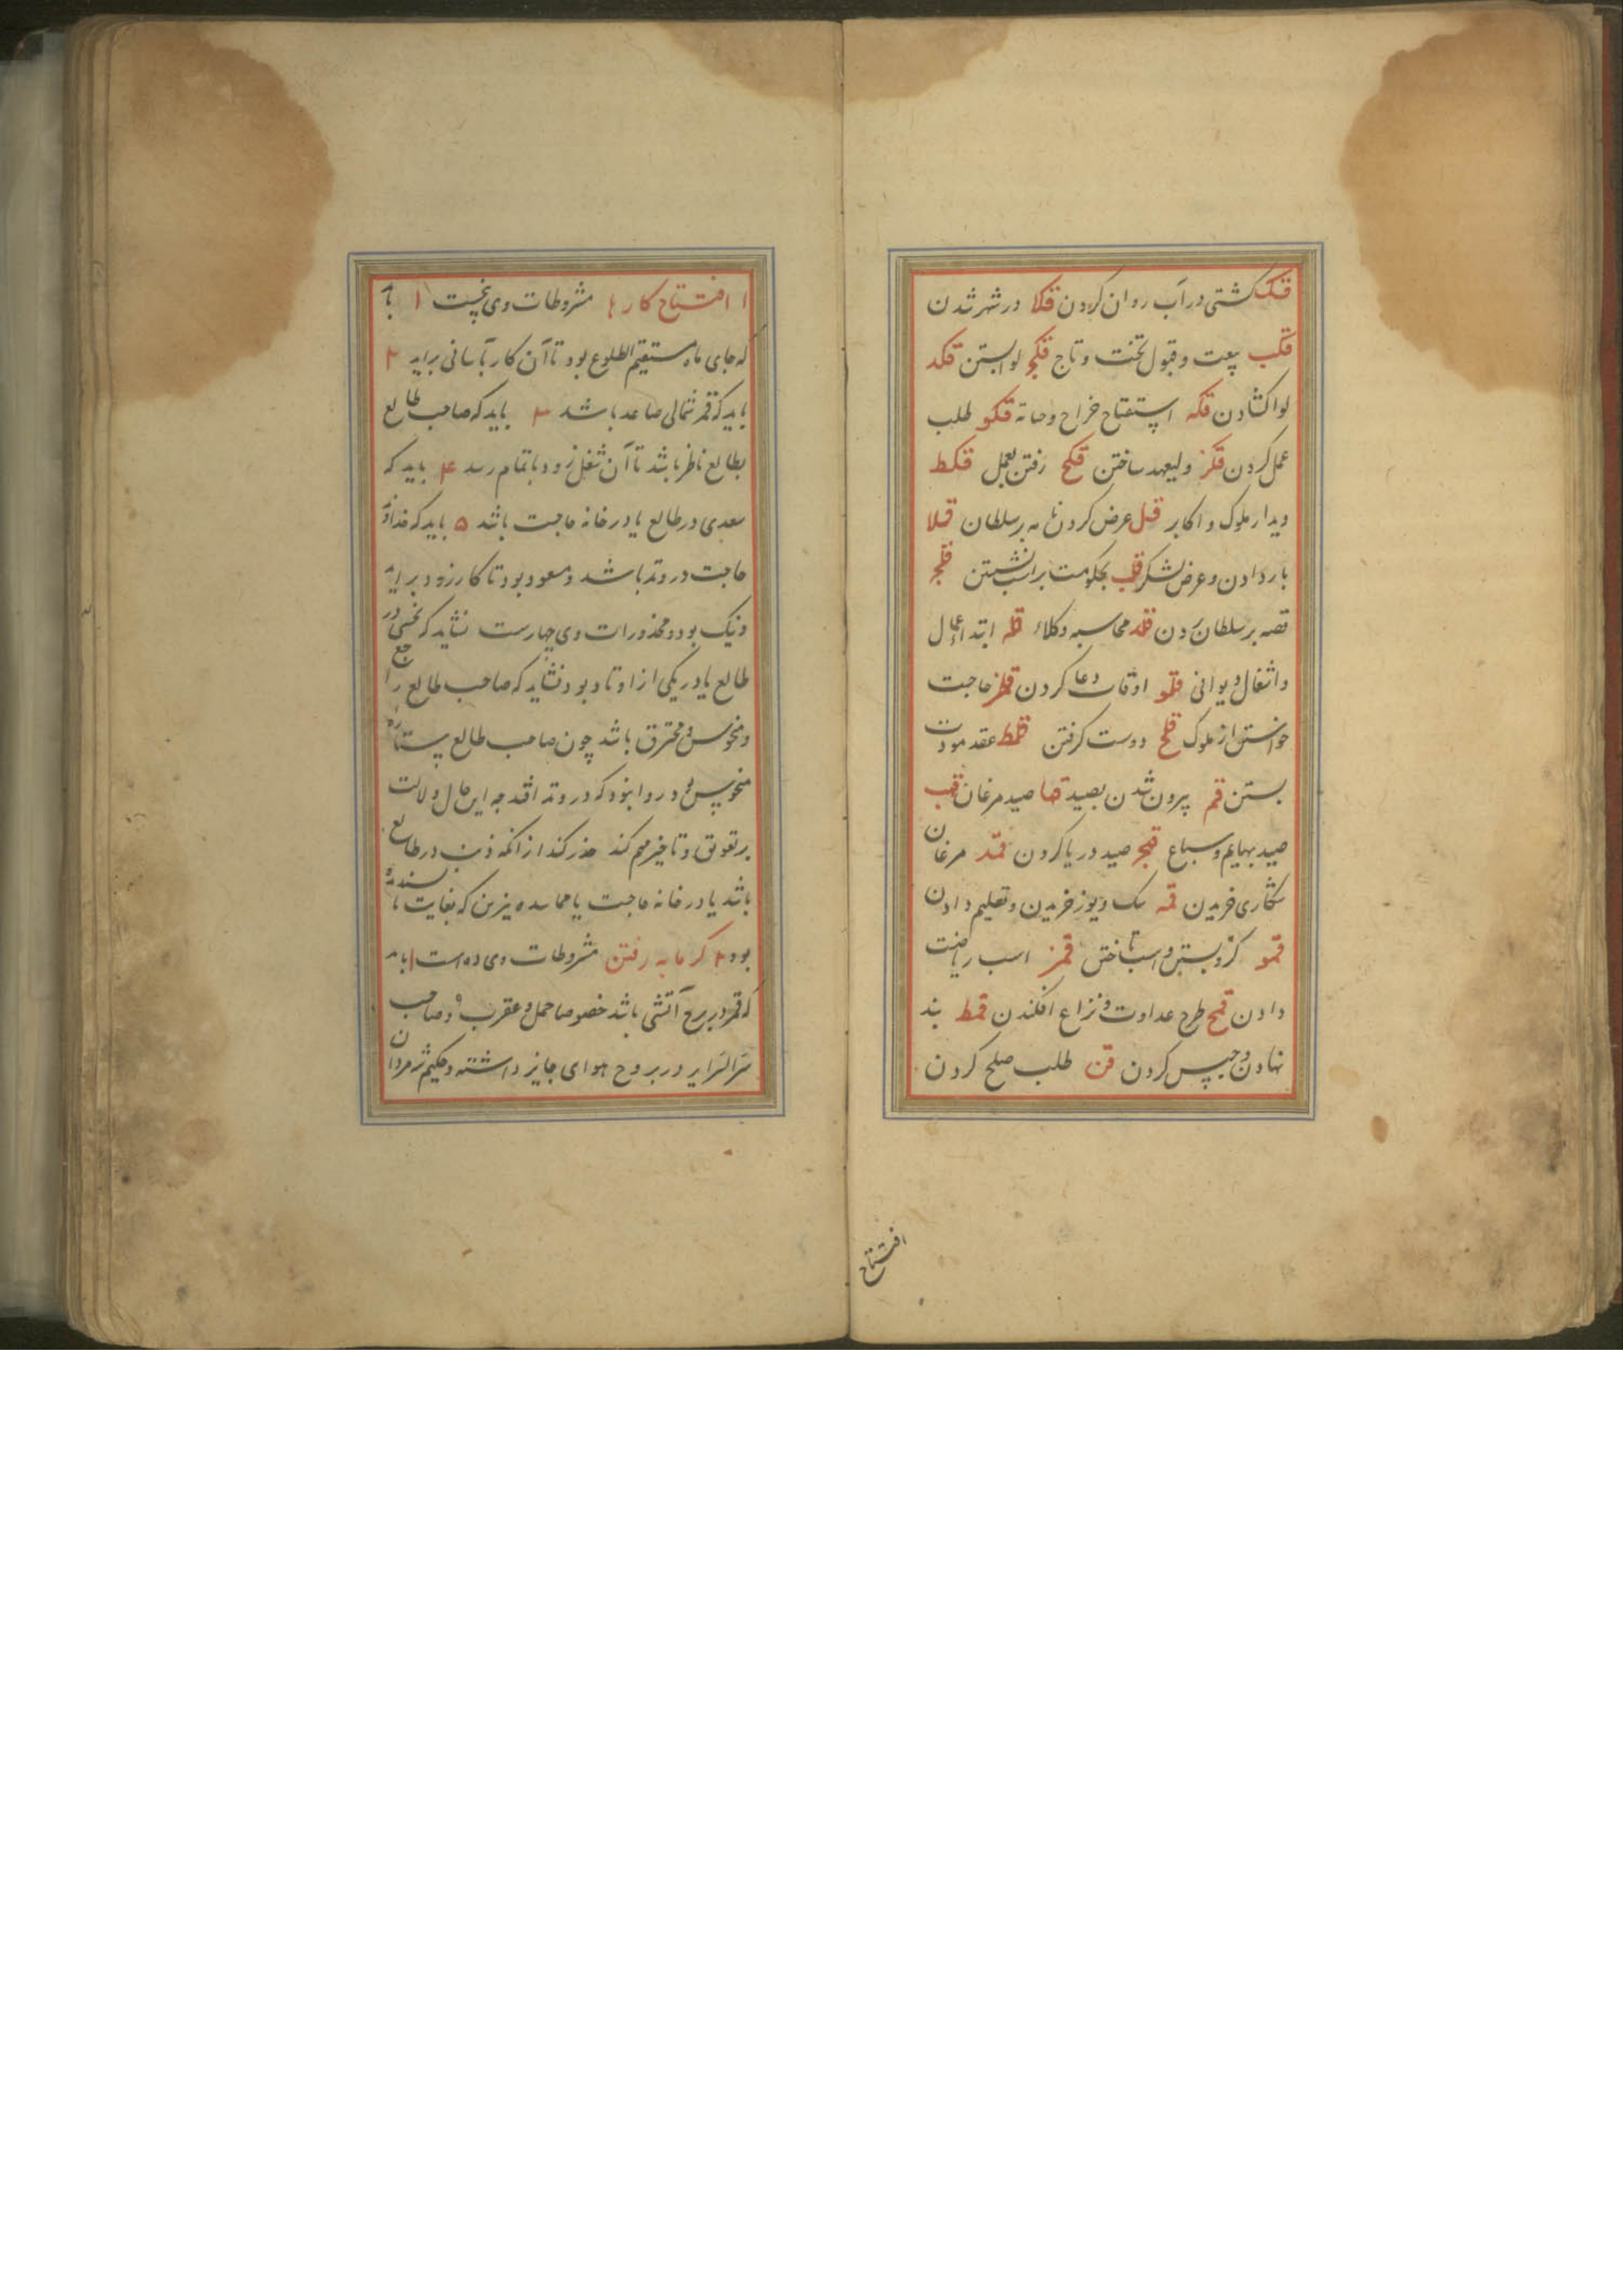 قک کشتی در آب روان کردن قکا در شهر شدن
قکب بیعت و قبول تخت و تاج قکج لوا بستن قکد
لوا کشادن قکه استفتاح خراج و قکو طلب
عمل کردن قکز ولیعهد ساختن قکح رفتن بعمل قکط
دیدار ملوک و اکابر قل عرض کردن نامه بر سلطان قلا
بار دادن و عرض لشکر قلب بحکومت براسب نشستن قلج
قصه بر سلطان زدن قلد محاسبه وکلاء قله ابتداء اعمال
و اشغال دیوانی قلو اوقات دعا کردن قلز حاجت
خواستن از ملوک قلح دوست کرفتن قلط عقد مودت
بستن قم بیرون شدن بصید قما صید مرغان قمب
صید بهایم و سباع قمج صید دریا کردن قمد مرغان
شکاری خریدن قمه سک و یوز خریدن و تعلیم دادن
قمو کرو بستن و اسب تاختن قمز اسب ریاضت
دادن قمح طرح عداوت و نزاع افکندن قمط بند
نهادن و حبس کردن قن طلب صلح کردن
افتتاح
ا افتتاح کارها مشروطات وی پنجست ۱ با
که جای ماه مستقیم الطلوع بود تا آن کار بآسانی براید ۲
باید که قمر شمالی صاعد باشد ۳ باید که صاحب طالع
بطالع ناظر باشد تا آن شغل زود باتمام رسد ۴ باید که
سعدی در طالع یا در خانه حاجت باشد ۵ باید که خداوند
حاجت در وتد باشد و مسعود بود تا کار زود براید
و نیک بود و محذورات وی چهارست نشاید که نحسی در
طالع یا در یکی از اوتاد بود نشاید که صاحب طالع راجع
و منحوس و محترق باشد چون صاحب طالع ستاره
منحوس بود روا نبود که در وتد افتد چه این حال دلالت
بر تعویق و تاخیر مهم کند حذر کند از انکه ذنب در طالع
باشد یا در خانه حاجت یا که بغایت ناپسندیده
بود ۲ کرمابه رفتن مشروطات وی ده است ۱ باید
که قمر در برج آتشی باشد خصوصا حمل و عقرب و صاحب
سرالسرایر در بروج هوای جایز داشته و حکیم شرمردان